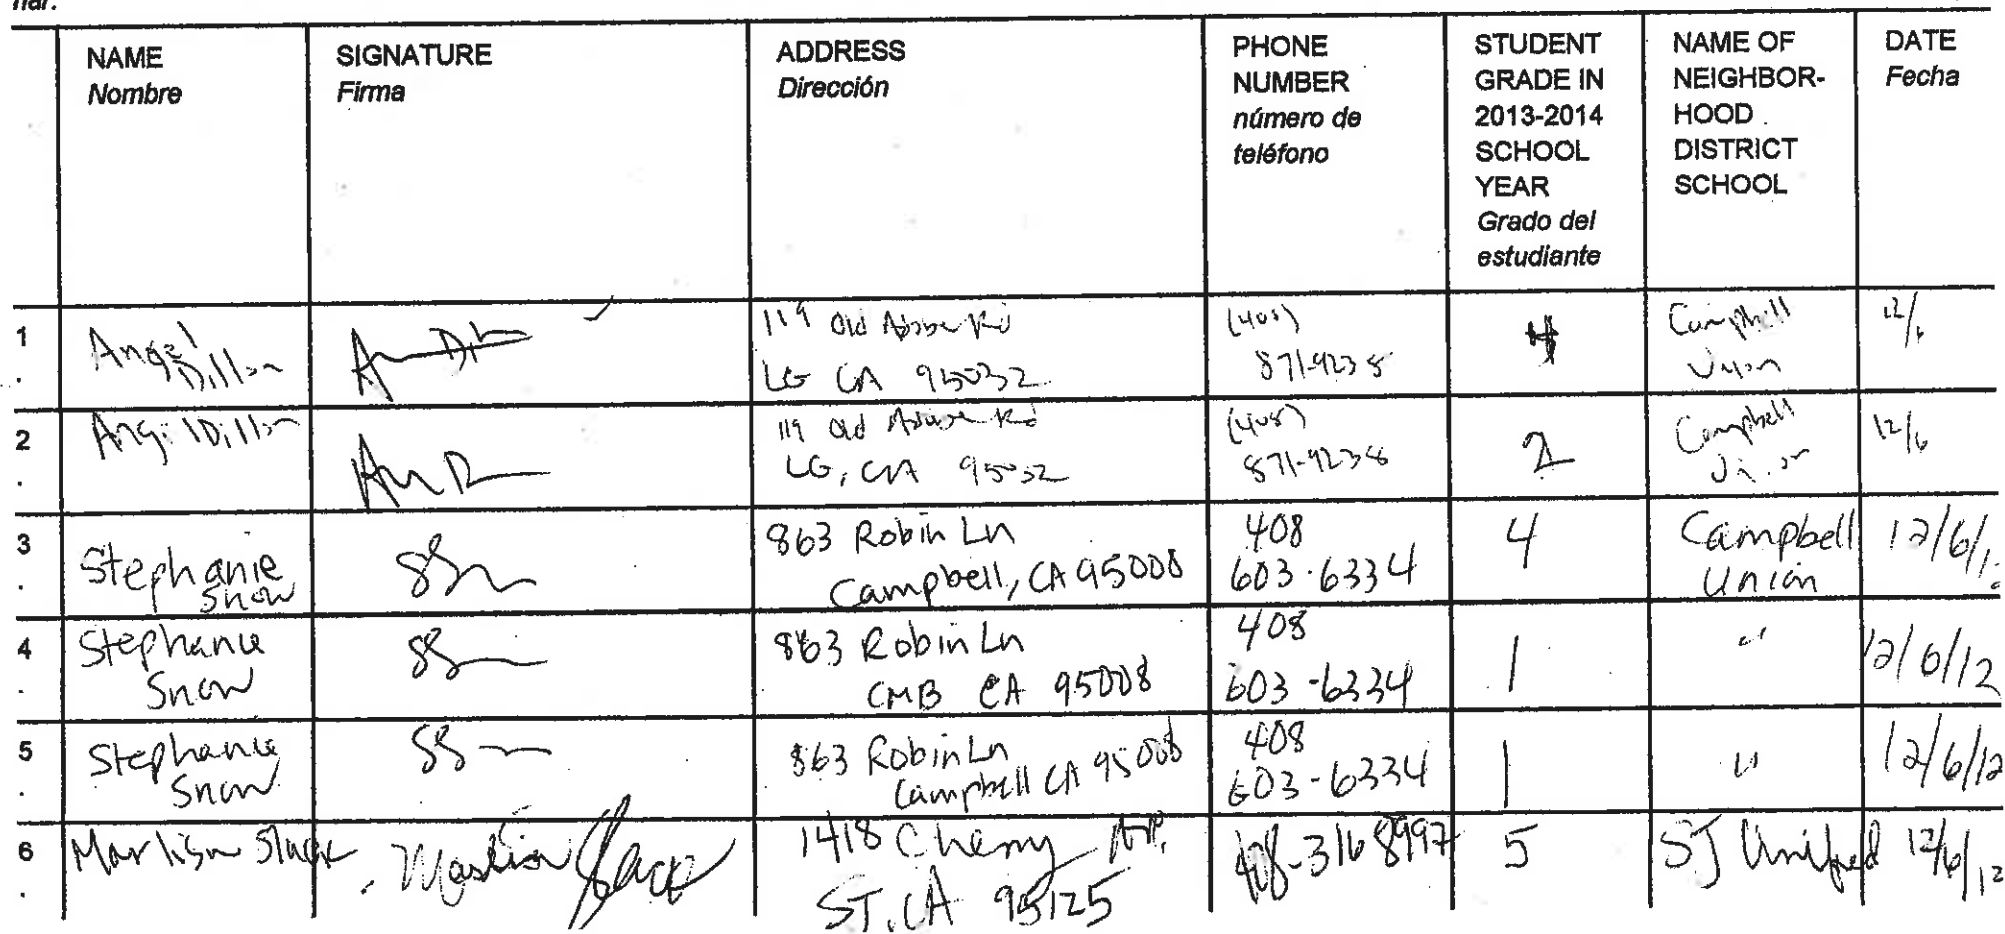 nar.
NAME
Nombre
SIGNATURE
Firma
ADDRESS
Dirección
PHONE
NUMBER
número de
teléfono
STUDENT
GRADE IN
2013-2014
SCHOOL
YEAR
Grado del
estudiante
NAME OF
NEIGHBOR-
HOOD
DISTRICT
SCHOOL
DATE
Fecha
1.
Angel
Dillon
119 Old Adobe Rd
LG CA 95032
(408)
871-9238
4
Campbell
Union
12/6
2.
Angel Dillon
119 Old Adobe Rd
LG, CA 95032
(408)
871-9238
2
Campbell
Union
12/6
3.
Stephanie
Snow
863 Robin Ln
Campbell, CA 95008
408
603-6334
4
Campbell
Union
12/6/1
4.
Stephanie
Snow
863 Robin Ln
CMB CA 95008
408
603-6334
1
"
12/6/12
5.
Stephanie
Snow
863 Robin Ln
Campbell CA 95008
408
603-6334
1
"
12/6/12
6.
1418 Cherry
CA 95125
408-316 8997
5
SJ Unified
12/6/12